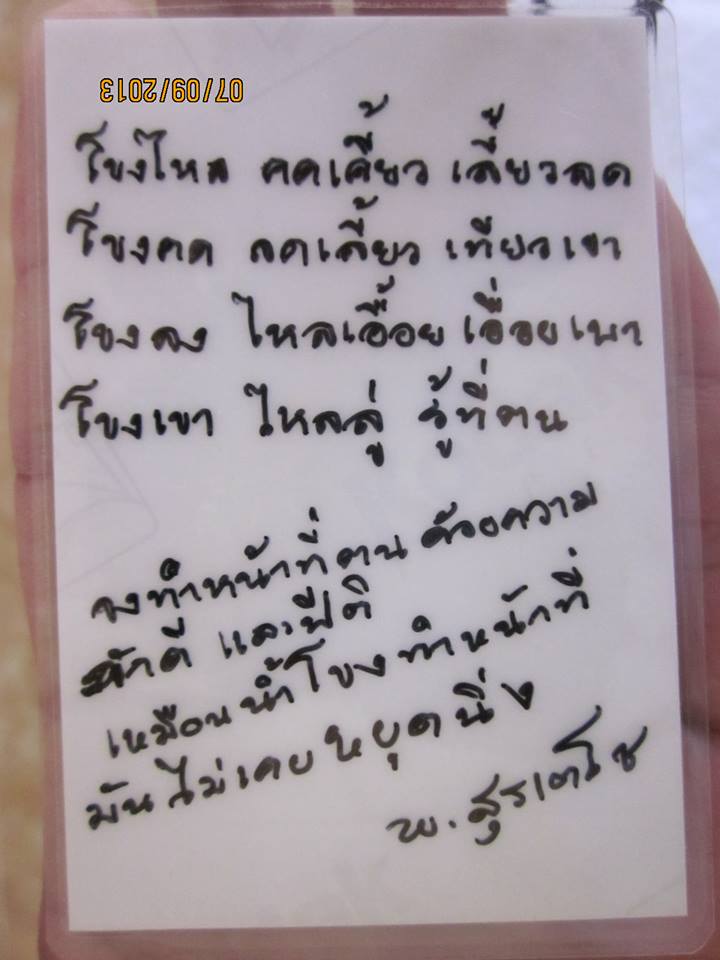 07/09/2013
โขงไหล คดเคี้ยว เลี้ยวลด
โขงคด ลดเลี้ยว เทียวเขา
โขงลง ไหลเอื้อย เอื่อยเพา
โขงเขา ไหลลู่ รู้ที่ตน
จงทำหน้าที่ตน ด้วยความ
ภักดี และปีติ
เหมือนน้ำโขงทำหน้าที่
มันไม่เคยหยุดนิ่ง
พ. สุรเตโช